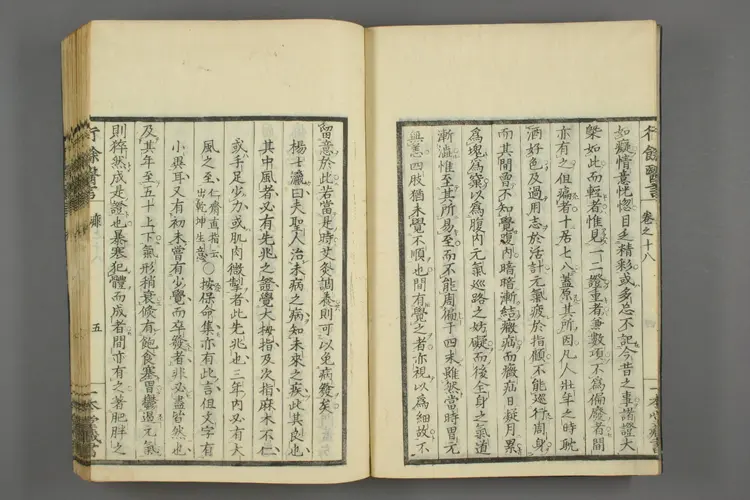 行餘醫言 卷之十八
如癡情意恍惚目乏精彩或多忘不記今昔之事諸證大
槩如此而輕者惟見一二證重者兼數項不爲偏廢者間
亦有之但偏者十居七八蓋原其所因凡人壯年之時耽
酒好色及過用志於活計元氣疲於指顧不能巡行周身
而其間曾不知覺腹內暗暗漸結癥疝而癥疝日凝月累
爲塊爲窠以爲腹內元氣巡路之妨礙而後全身之氣道
漸澁惟至其所易至而不能周偏于四末雖然當時胃元
無恙四肢猶未覺不順也間有覺之者亦視以爲細故不
留意於此若當是時艾灸調泰則可以免病發矣
楊士瀛曰夫聖人治未病之病知未來之疾此其良也
其中風者必有先兆之證覺大拇指及次指麻木不仁
或手足少力或肌肉微掣者此先兆也三年內必有大
風之至出仁齋直指云乾坤生意〇按保命集亦有此言但文字有
小異耳又有初未嘗有少覺而卒發者非必盡皆然也
及其年至五十上下氣形稍衰倏有飽食塞胃鬱遏元氣
則猝然成是證也暴寒犯體而成者間亦有之著肥胖之
行餘醫言
五